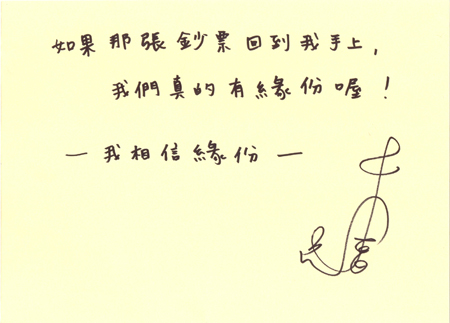 如果那張鈔票回到我手上,
我們真的有緣份喔!
— 我相信緣份 —